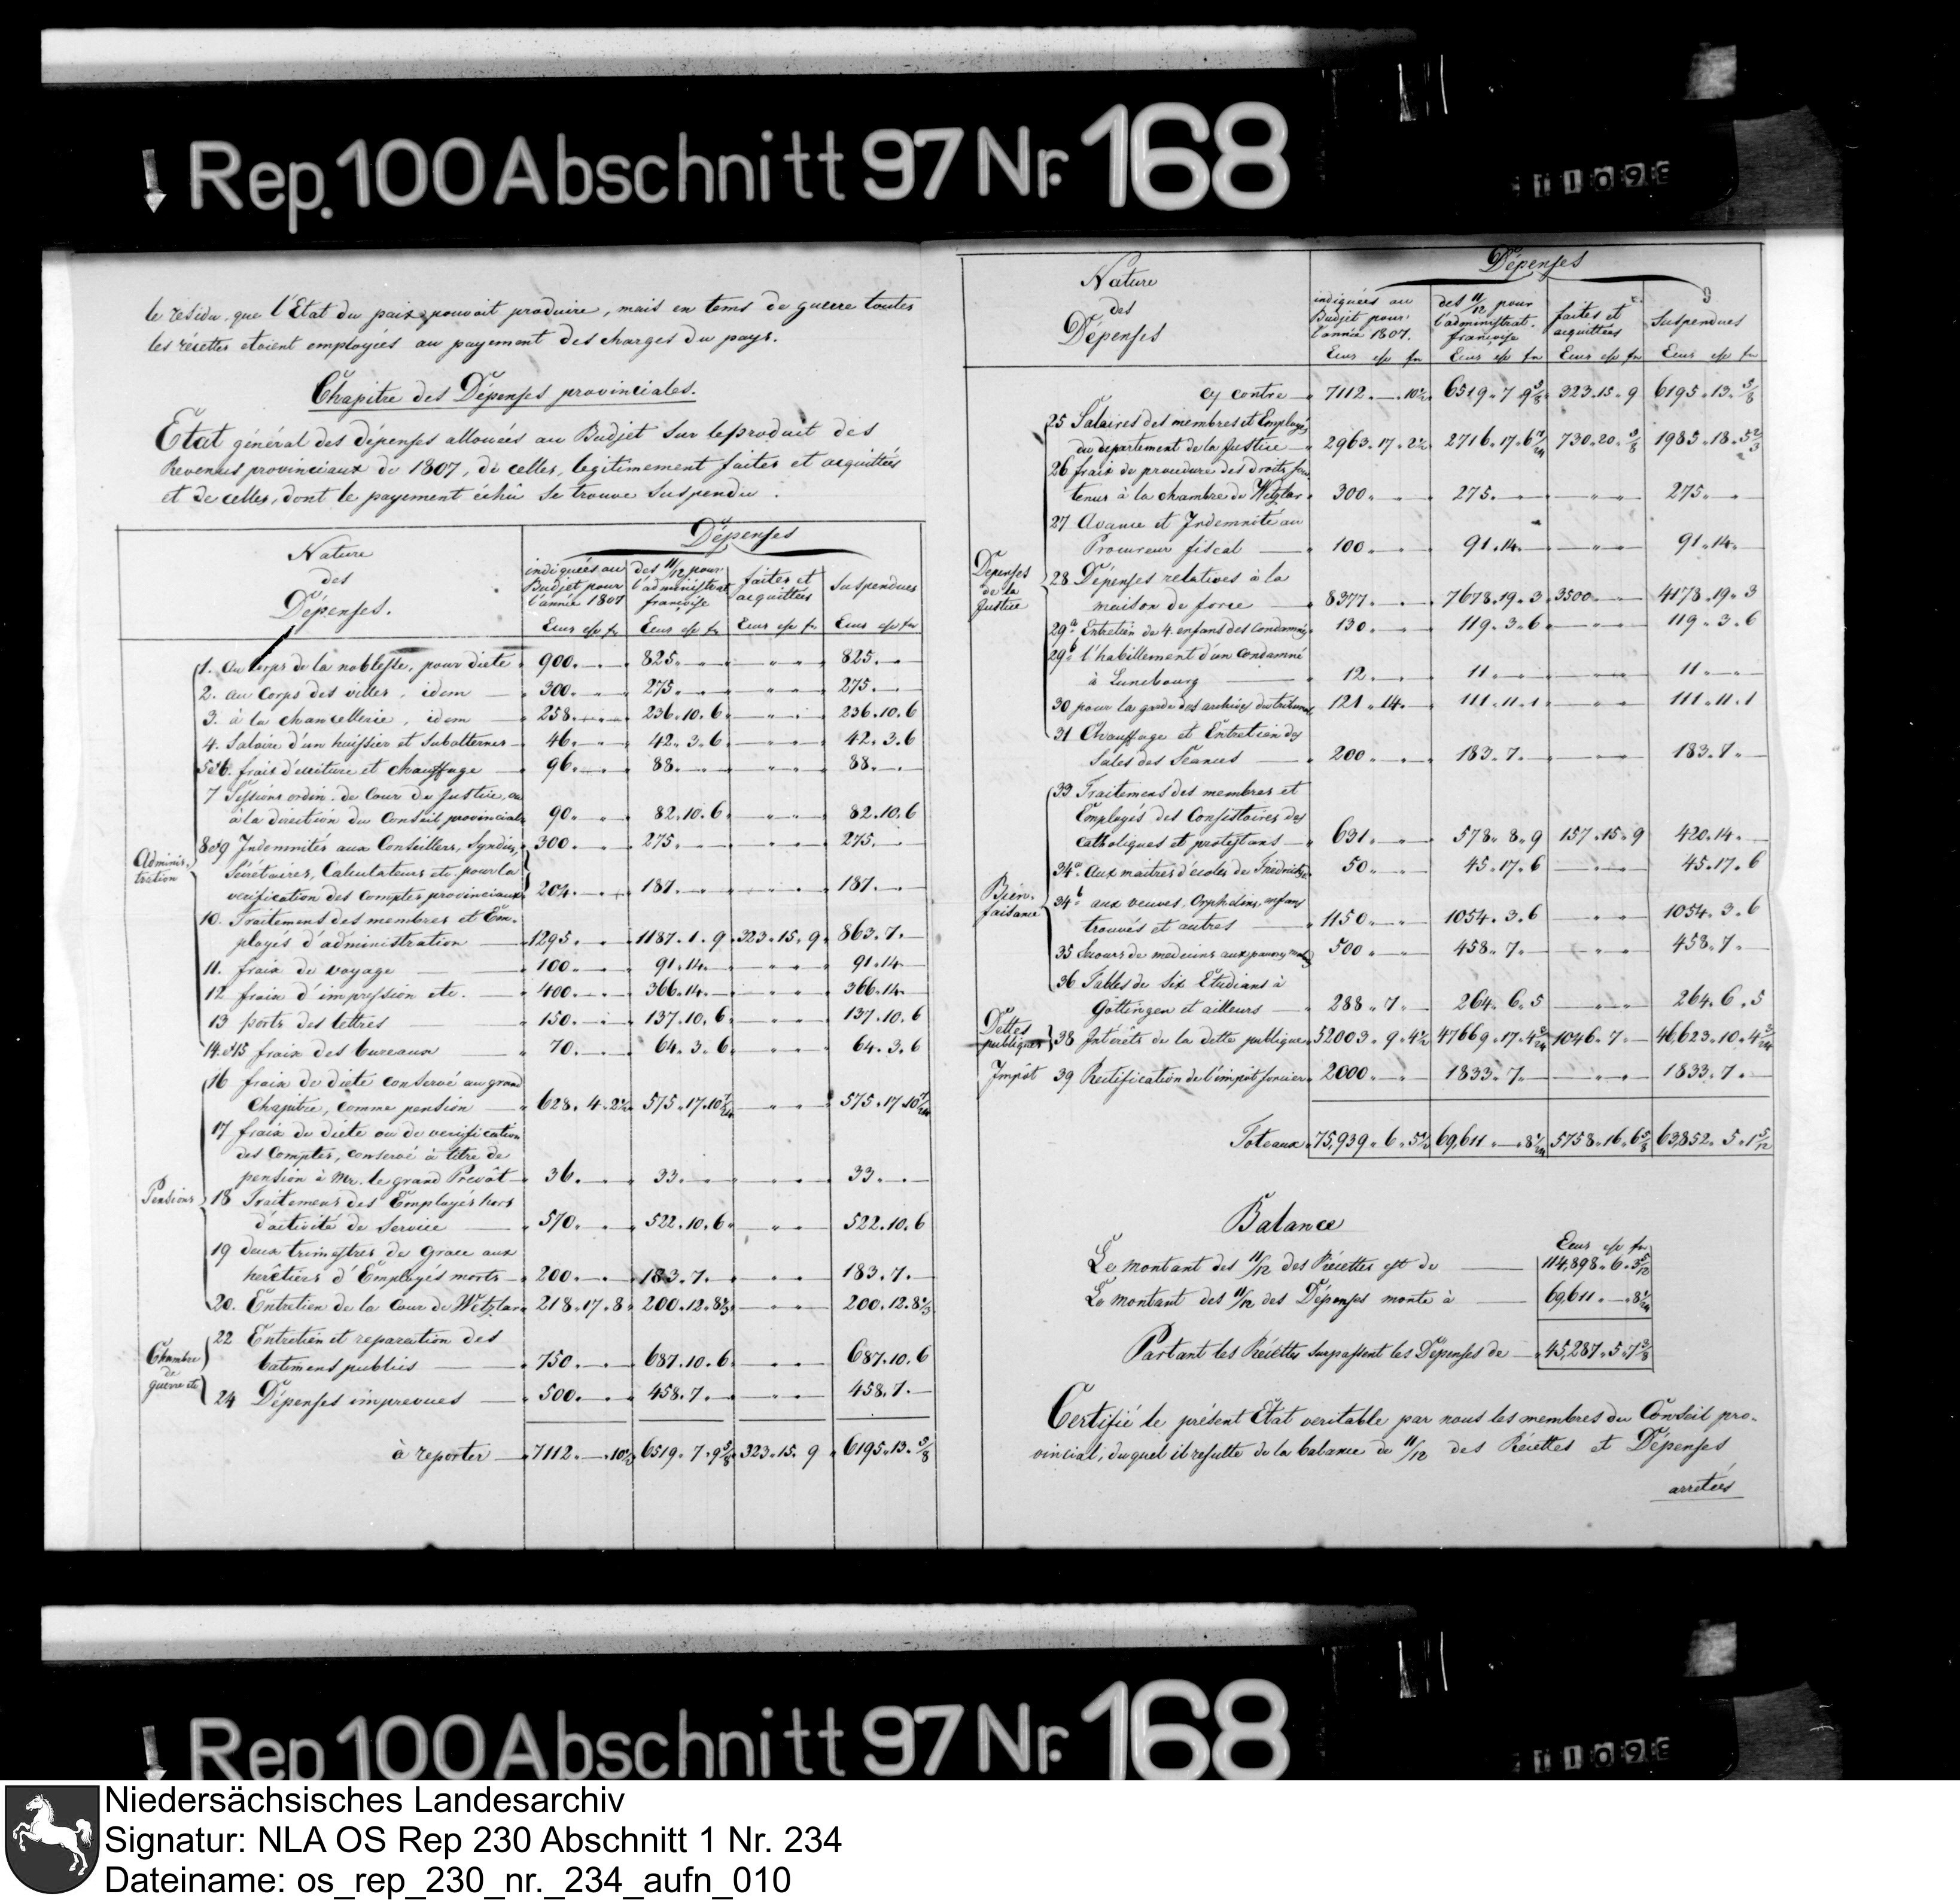 Rep. 100 Abschnitt 97 Nr. 168
11098
le residu, que l'Etat du paix pouvoit produire, mais en tems de guerre toutes
les récettes etoient employées au payement des charges du pays.
Chapitre des Dépenses provinciales.
Etat général des dépenses allouées au Budjet sur le produit des
Revenus provinciaux de 1807, de celles, legitimement faites et acquittées
et de celles, dont le payement échû se trouve suspendu.
Nature des Dépenses. Dépenses
indiquées au Budjet pour l'année 1807 des 11/12 pour l'administrat. françoise faites et acquittées Suspendues
Ecus esp fn Ecus esp fn Ecus esp fn Ecus esp fn
Administration
1. au corps de la noblesse, pour diete 900. 825. 825.
2. au Corps des villes, idem 300. 275. 275.
3. à la chancellerie, idem 258. 236. 10. 6 236. 10. 6
4. Salaire d'un huissier et Subalternes 46. 42. 3. 6 42. 3. 6
5 et 6. frais d'ecriture et chauffage 96. 88. 88.
7 Sessions ordin. de Cour de Justice, ou
à la direction du Conseil provincial 90. 82. 10. 6 82. 10. 6
8 et 9 Indemnités aux Conseillers, Syndics, 300. 275. 275.
Sécrétaires, Calculateurs etc. pour la
verification des Comptes provinciaux 204. 187. 187.
10. Traitemens des membres et Em-
ployés d'administration 1295. 1187. 1. 9 323. 15. 9 863. 7.
11. fraix de voyage 100. 91. 14. 91. 14
12 fraix d'impression etc. 400. 366. 14. 366. 14
13 ports des lettres 150. 137. 10. 6 137. 10. 6
14 et 15 fraix des bureaux 70. 64. 3. 6 64. 3. 6
Pensions
16 fraix de diete conservé au grand
Chapitre, comme pension 628. 4. 2 575. 17. 10 575. 17. 10
17 fraix de diete ou de verification
des Comptes, conservé à titre de
pension à Mr. le grand Prevôt 36. 33. 33.
18 Traitemens des Employés hors
d'activité de service 570. 522. 10. 6 522. 10. 6
19 deux trimestres de grace aux
heretiers d'Employés morts 200. 183. 7. 183. 7.
20. Entretien de la Cour de Wetzlar 218. 17. 8 200. 12. 8 200. 12. 8
Chambre de guerre etc
22 Entretien et reparation des
batimens publics 750. 687. 10. 6 687. 10. 6
24 Dépenses imprevues 500. 458. 7. 458. 7.
à reporter 7112. 10 6519. 7. 9 5/8 323. 15. 9 6195. 13. 5/8
9
Nature des Dépenses Dépenses
indiquées au Budjet pour l'année 1807. des 11/12 pour l'administrat. françoise faites et acquittées Suspendues
Ecus esp fn Ecus esp fn Ecus esp fn Ecus esp fn
cy contre 7112. 10 6519. 7 9 5/8 323. 15. 9 6195. 13. 5/8
Depenses de la Justice
25 Salaires des membres et Employés
du departement de la Justice 2963. 17. 2 2716. 17. 6 730. 20. 1985. 18. 5
26 fraix de procedure des droits
tenus à la chambre de Wetzlar 300. 275. 275.
27 Avance et Indemnité au
Procureur fiscal 100. 91. 14. 91. 14.
28 Dépenses relatives à la
maison de force 8377. 7678. 19. 3 3500 4178. 19. 3
29a Entretien de 4. enfans des Condamnés 130. 119. 3. 6 119. 3. 6
29b l'habillement d'un Condamné
à Lunebourg 12. 11. 11.
30 pour la garde des archives du tribunal 121. 14. 111. 11. 1 111. 11. 1
31 Chauffage et Entretien des
Sales des Seances 200 183. 7. 183. 7.
Bienfaisance
33 Traitemens des membres et
Employés des Consistoires des
Catholiques et protestans 631 578. 8. 9 157. 15. 9 420. 14.
34a aux maitres d'ecoles de 50. 45. 17. 6 45. 17. 6
34b aux veuves, Orphelins, enfans
trouvés et autres 1150 1054. 3. 6 1054. 3. 6
35 Secours de medecins aux pauvres 500 458. 7. 458. 7.
36 Tables de six Etudians à
Göttingen et ailleurs 288. 7 264. 6. 5 264. 6. 5
Dettes publiques 38 Intérêts de la dette publique 52003. 9. 4 47669. 17. 4 1046. 7. 46,623. 10. 4
Impôt 39 Rectification de l'impôt foncier 2000. 1833. 7. 1833. 7.
Toteaux 75,939. 6. 5 69,611. 8 5758. 16. 6 5/8 63,852. 5. 1 5/12
Balance
Ecus esp fn
Le montant des 11/12 des Récettes est de 114,898. 6. 3 5/12
Le montant des 11/12 des Dépenses monte à 69,611. 8
Partant les Récettes surpassent les Dépenses de 45,287. 5. 7 3/8
Certifié le présent Etat veritable par nous les membres du Conseil pro-
vincial, duquel il resulte de la balance de 11/12 des Récettes et Dépenses
arretées
Rep 100 Abschnitt 97 Nr. 168
11098
Niedersächsisches Landesarchiv
Signatur: NLA OS Rep 230 Abschnitt 1 Nr. 234
Dateiname: os_rep_230_nr._234_aufn_010